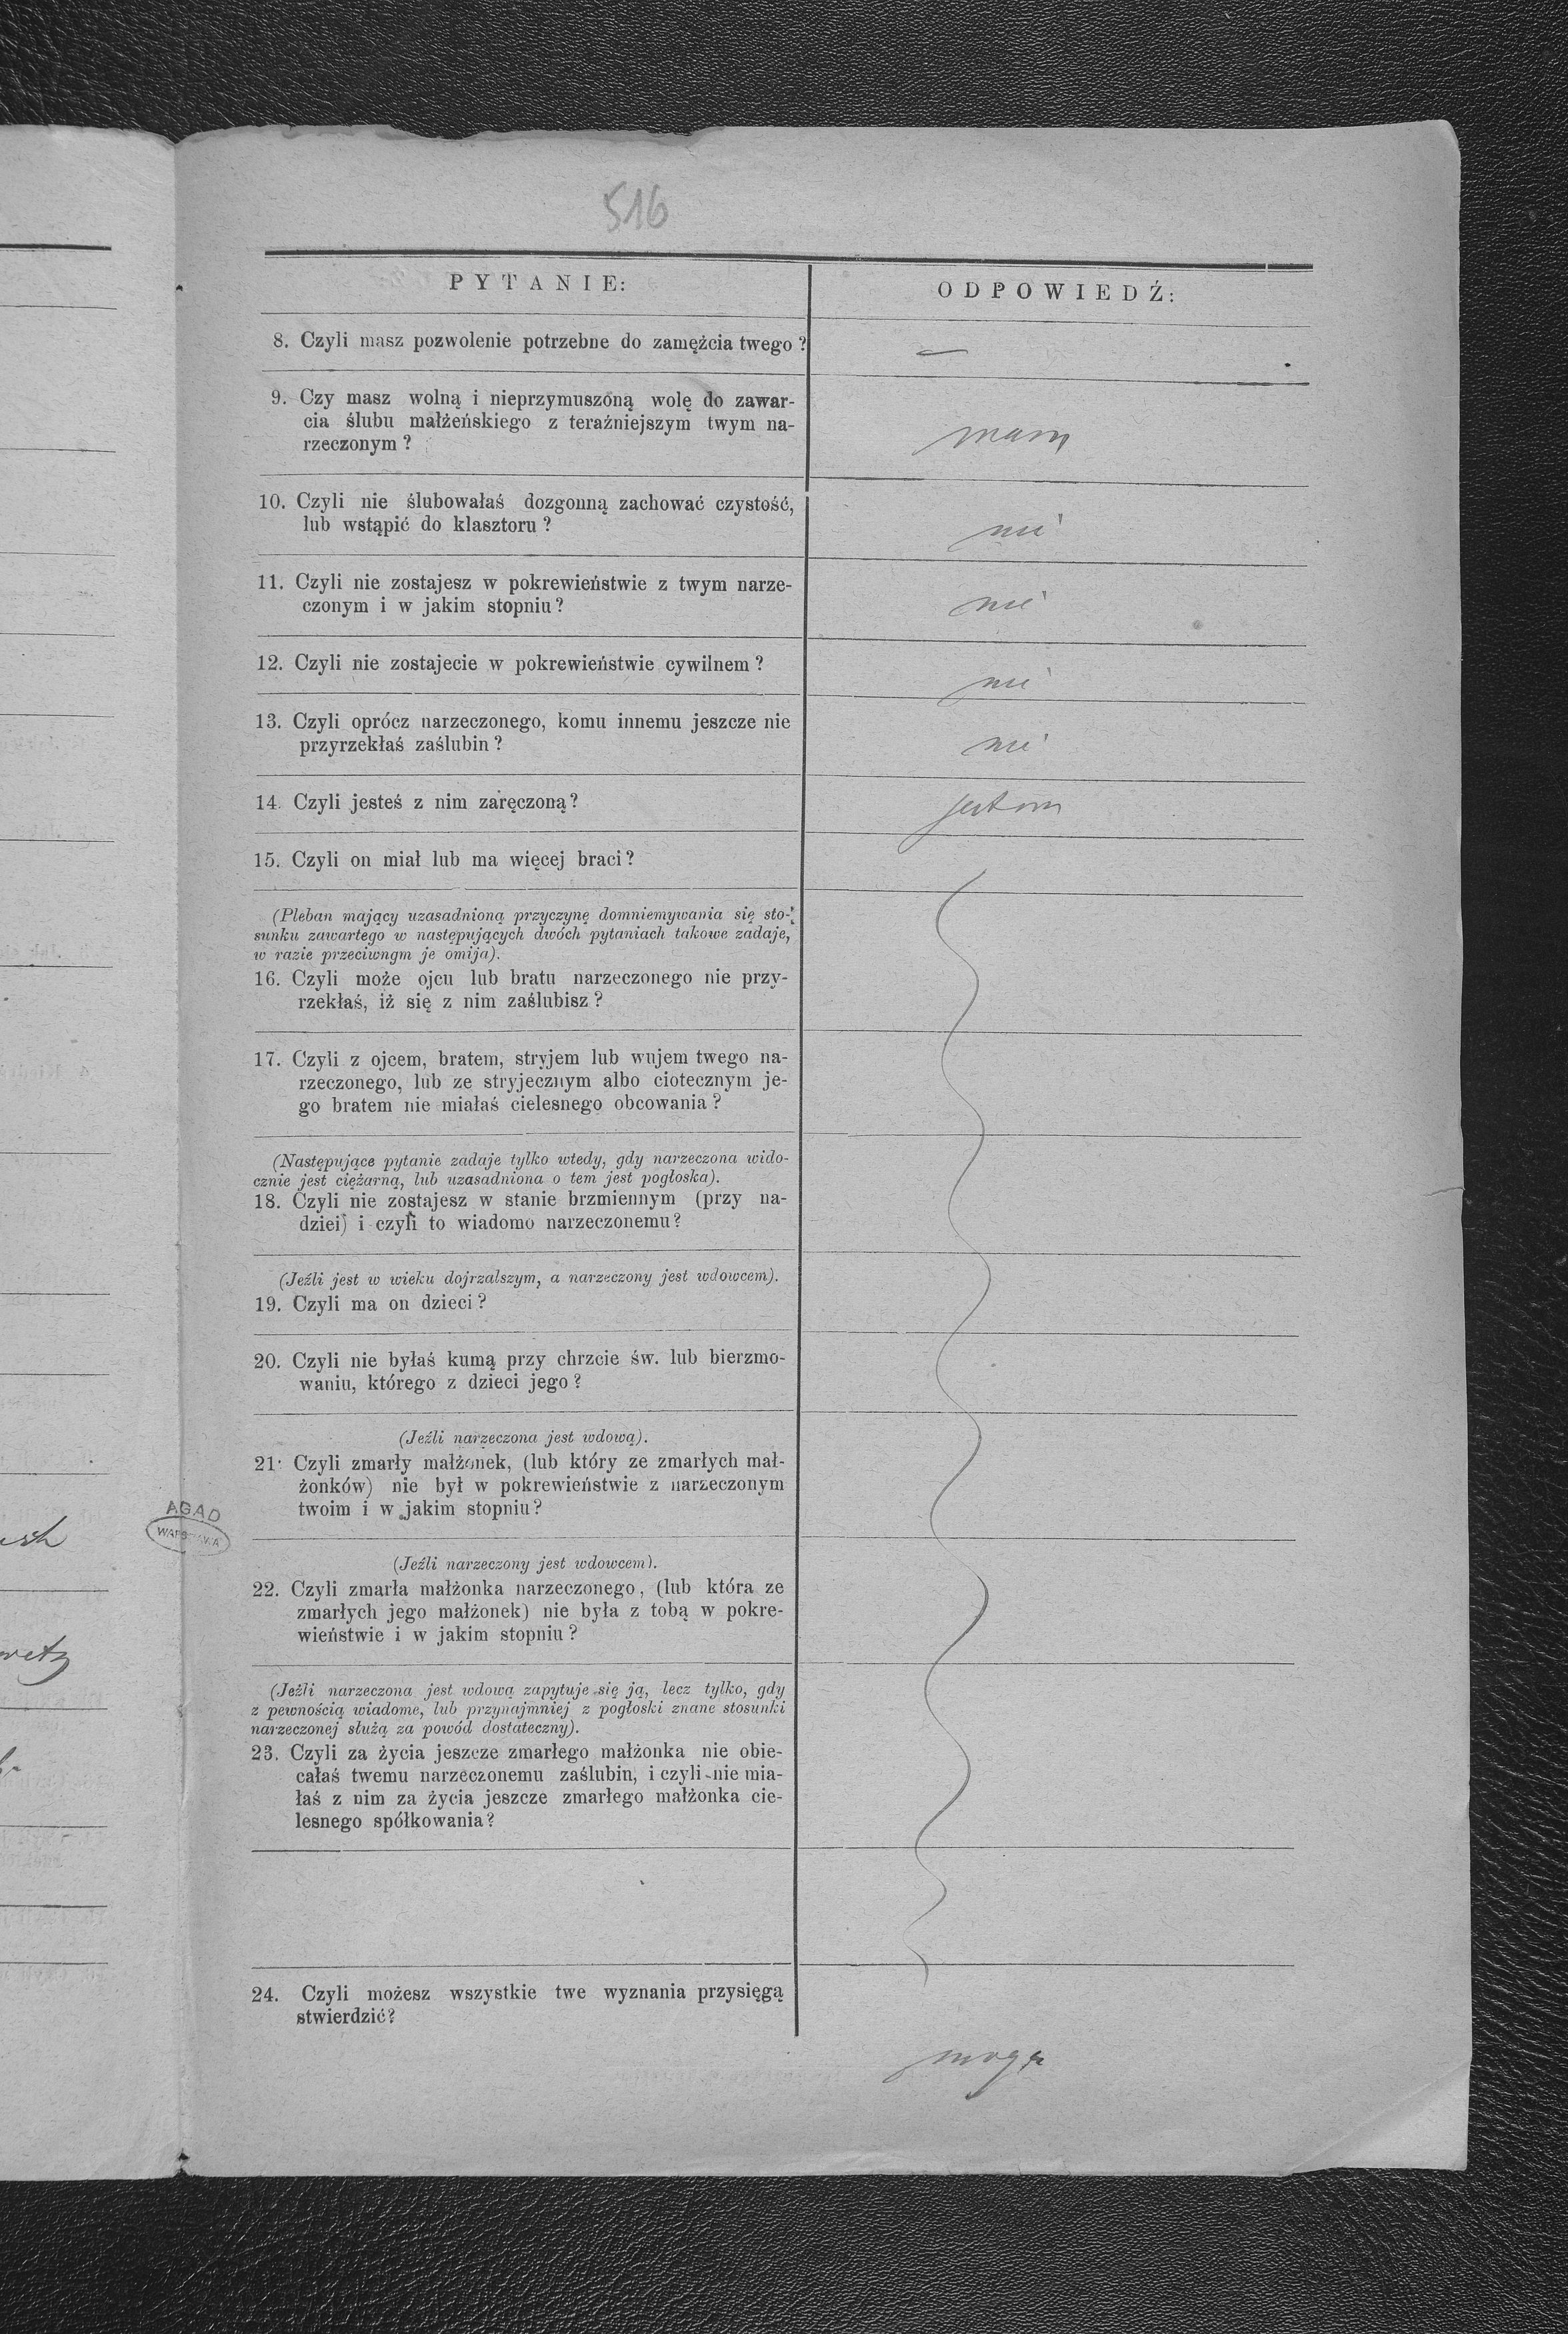 516
PYTANIE:
ODPOWIEDŹ:
8. Czyli masz pozwolenie potrzebne do zamężcia twego?
—
9. Czy masz wolną i nieprzymuszoną wolę do zawar-
cia ślubu małżeńskiego z teraźniejszym twym na-
rzeczonym?
mam
10. Czyli nie ślubowałaś dozgonną zachować czystość,
lub wstąpić do klasztoru?
nie
11. Czyli nie zostajesz w pokrewieństwie z twym narze-
czonym i w jakim stopniu?
nie
12. Czyli nie zostajecie w pokrewieństwie cywilnem?
nie
13. Czyli oprócz narzeczonego, komu innemu jeszcze nie
przyrzekłaś zaślubin?
nie
14. Czyli jesteś z nim zaręczoną?
jestem
15. Czyli on miał lub ma więcej braci?
(Pleban mający uzasadnioną przyczynę domniemywania się sto-
sunku zawartego w następujących dwóch pytaniach takowe zadaje,
w razie przeciwngm je omija).
16. Czyli może ojcu lub bratu narzeczonego nie przy-
rzekłaś, iż się z nim zaślubisz?
17. Czyli z ojcem, bratem, stryjem lub wujem twego na-
rzeczonego, lub ze stryjecznym albo ciotecznym je-
go bratem nie miałaś cielesnego obcowania?
(Następujące pytanie zadaje tylko wtedy, gdy narzeczona wido-
cznie jest ciężarną, lub uzasadniona o tem jest pogłoska).
18. Czyli nie zostajesz w stanie brzmiennym (przy na-
dziei) i czyli to wiadomo narzeczonemu?
(Jeźli jest w wieku dojrzalszym, a narzeczony jest wdowcem).
19. Czyli ma on dzieci?
20. Czyli nie byłaś kumą przy chrzcie św. lub bierzmo-
waniu, którego z dzieci jego?
(Jeźli narzeczona jest wdową).
21. Czyli zmarły małżonek, (lub który ze zmarłych mał-
żonków) nie był w pokrewieństwie z narzeczonym
twoim i w jakim stopniu?
AGAD
WARSZAWA
(Jeźli narzeczony jest wdowcem).
22. Czyli zmarła małżonka narzeczonego, (lub która ze
zmarłych jego małżonek) nie była z tobą w pokre-
wieństwie i w jakim stopniu?
(Jeźli narzeczona jest wdową zapytuje się ją, lecz tylko, gdy
z pewnością wiadome, lub przynajmniej z pogłoski znane stosunki
narzeczonej służą za powód dostateczny).
23. Czyli za życia jeszcze zmarłego małżonka nie obie-
całaś twemu narzeczonemu zaślubin, i czyli nie mia-
łaś z nim za życia jeszcze zmarłego małżonka cie-
lesnego spółkowania?
24. Czyli możesz wszystkie twe wyznania przysięgą
stwierdzić?
mogę